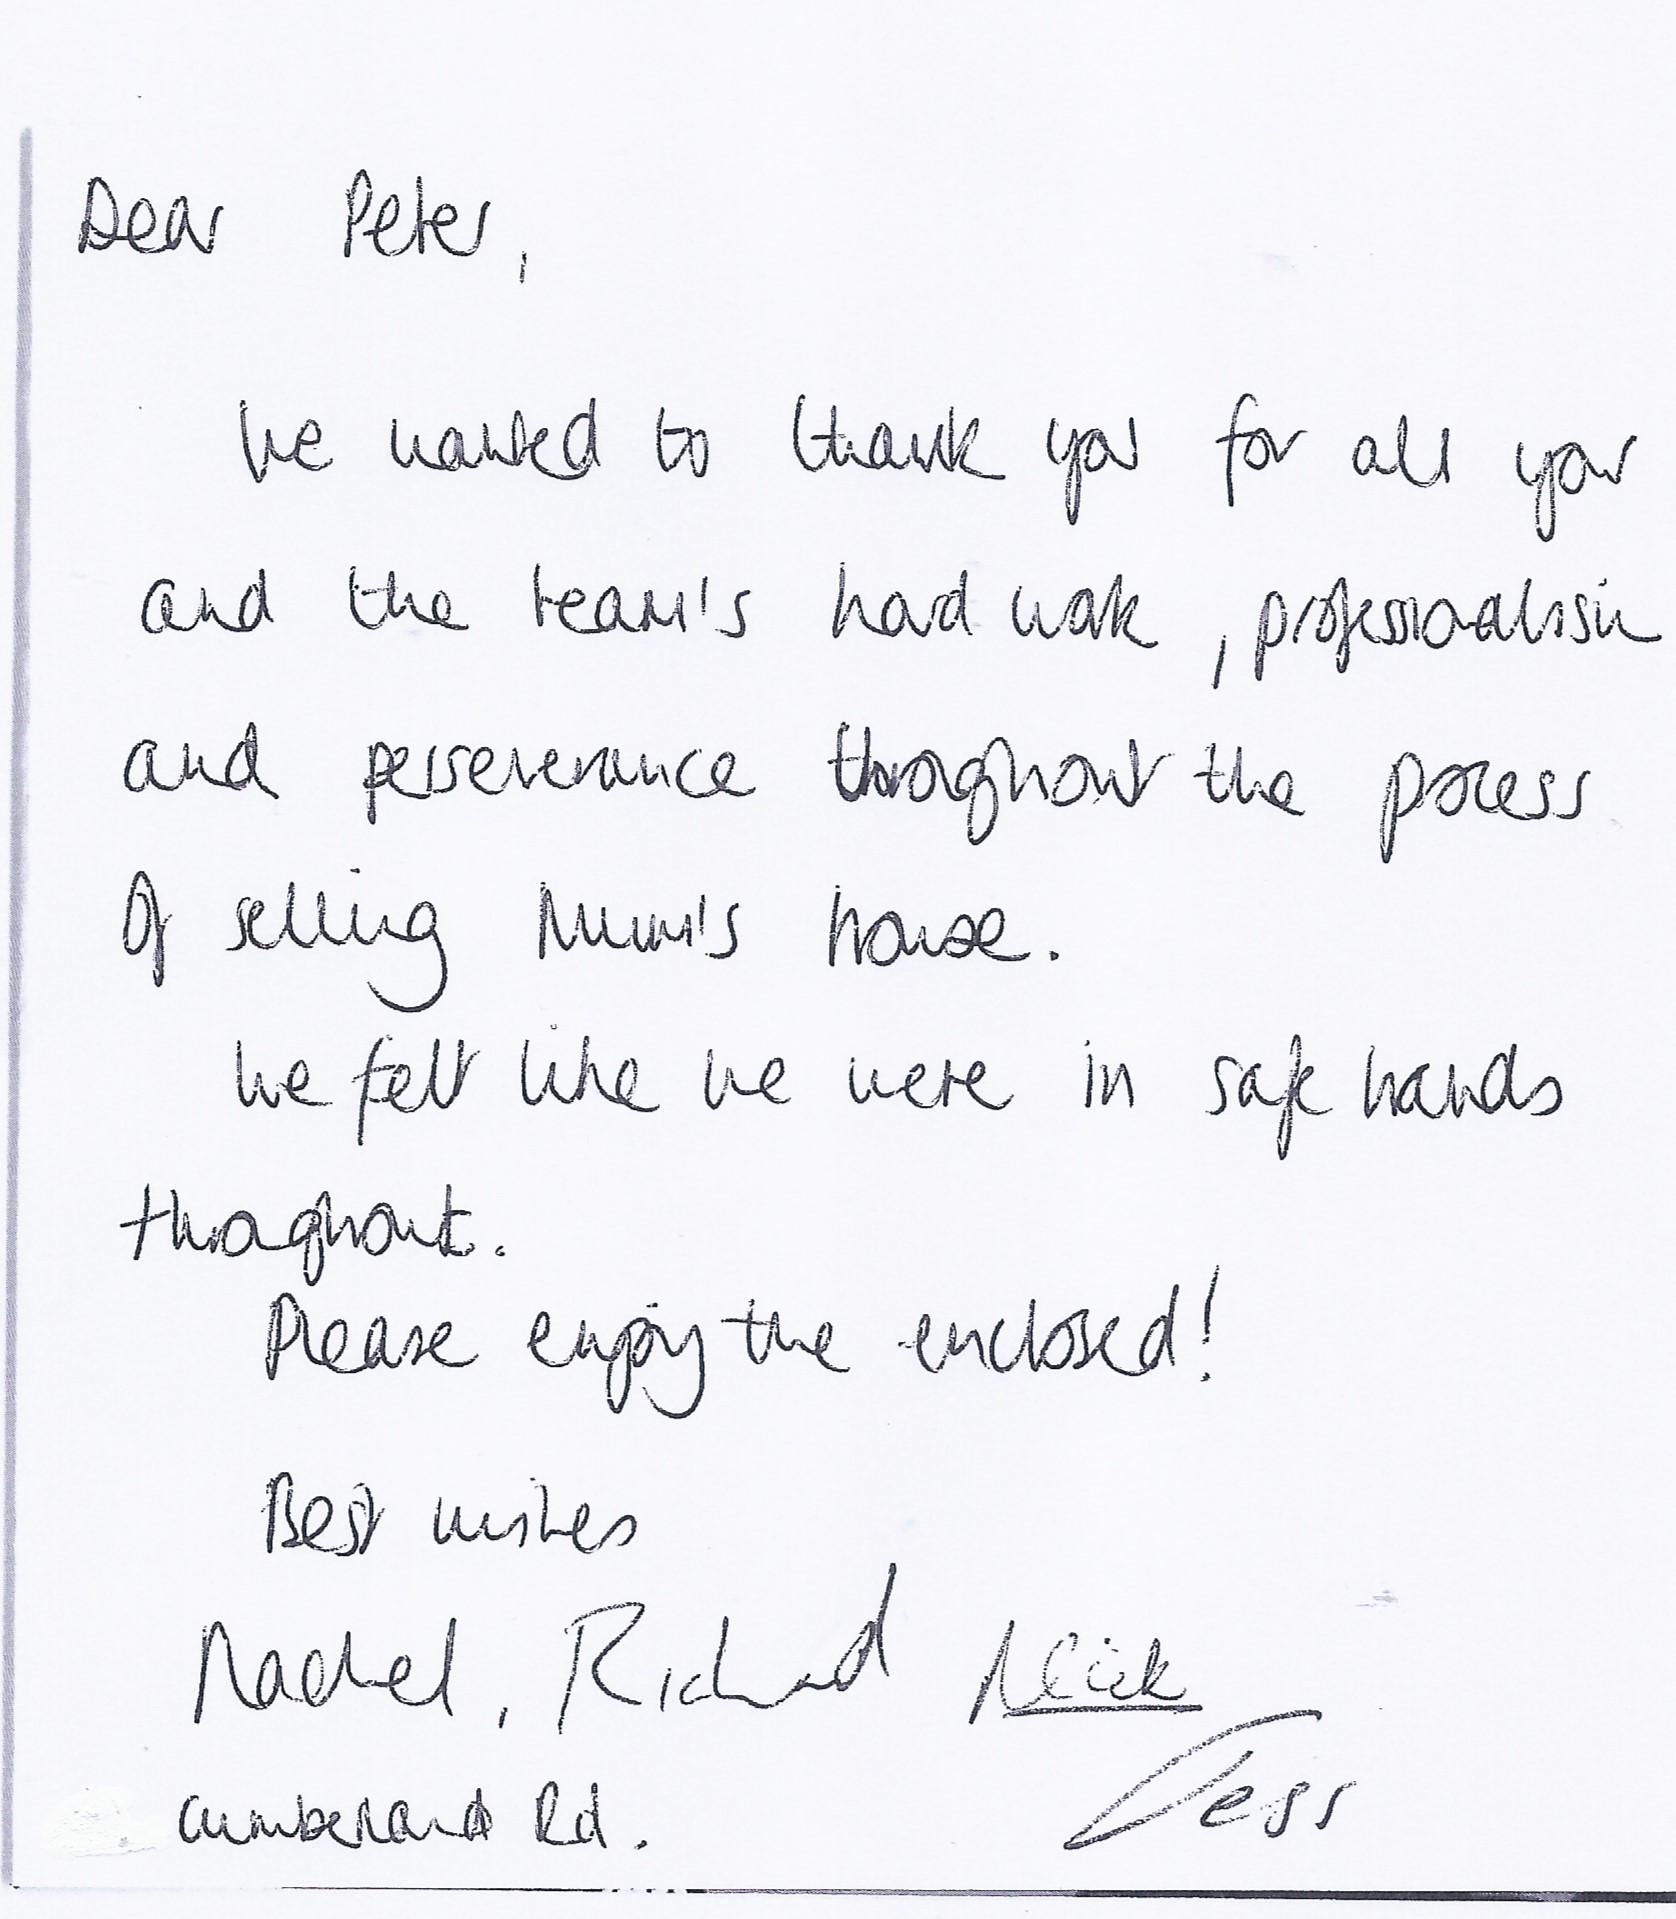 Dear Peter,
We wanted to thank you for all your
and the team's hard work, professionalism
and perseverance throughout the process
of selling Mum's house.
We felt like we were in safe hands
throughout.
Please enjoy the enclosed!
Best wishes
Rachel, Richard Nick
Jess
Cumberland Rd.